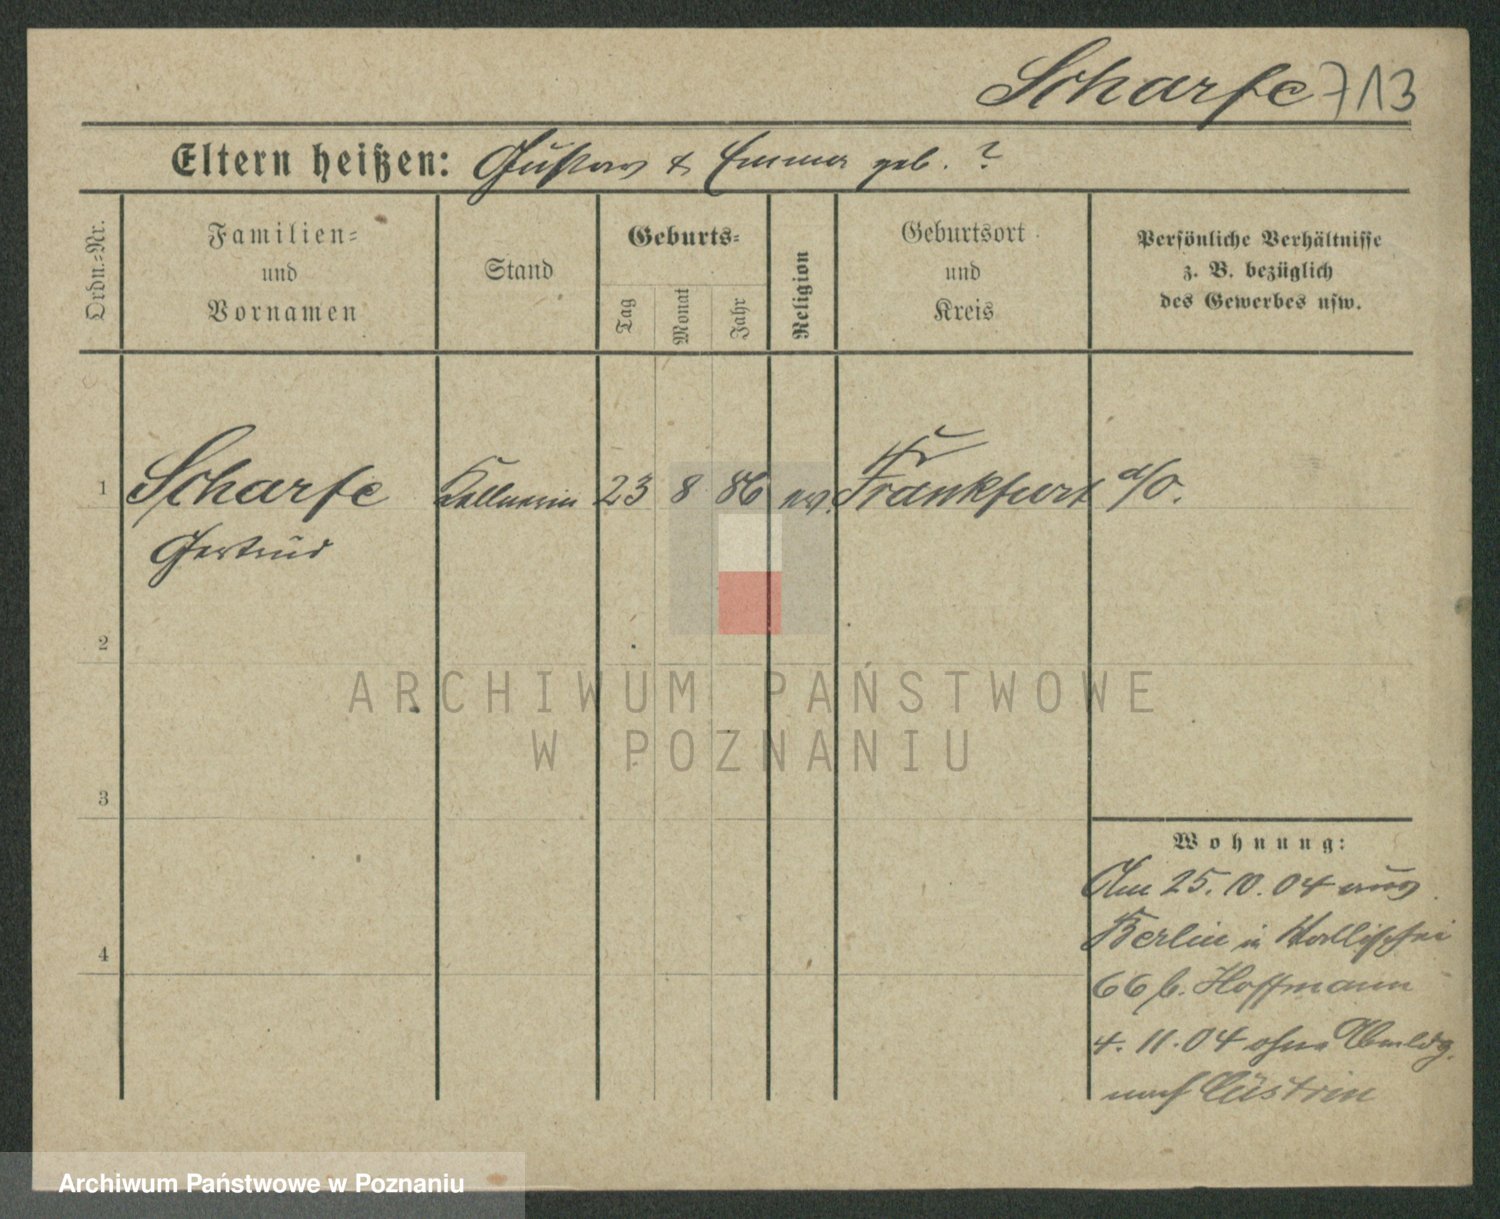 Scharfe 713
Eltern heißen: Gustav & Emma geb. ?
Ordn.-Nr.
Familien-
und
Vornamen
Stand
Geburts-
Tag
Monat
Jahr
Religion
Geburtsort
und
Kreis
Persönliche Verhältnisse
z. B. bezüglich
des Gewerbes usw.
1 Scharfe Kellnerin 23 8 86 ev. Frankfurt a/O.
Gertrud
2
3
4
Wohnung:
Am 25. 10. 04 aus
Berlin in Wallischei
66 b. Hoffmann
4. 11. 04 ohne Abmldg.
nach Cüstrin
ARCHIWUM PAŃSTWOWE
W POZNANIU
Archiwum Państwowe w Poznaniu